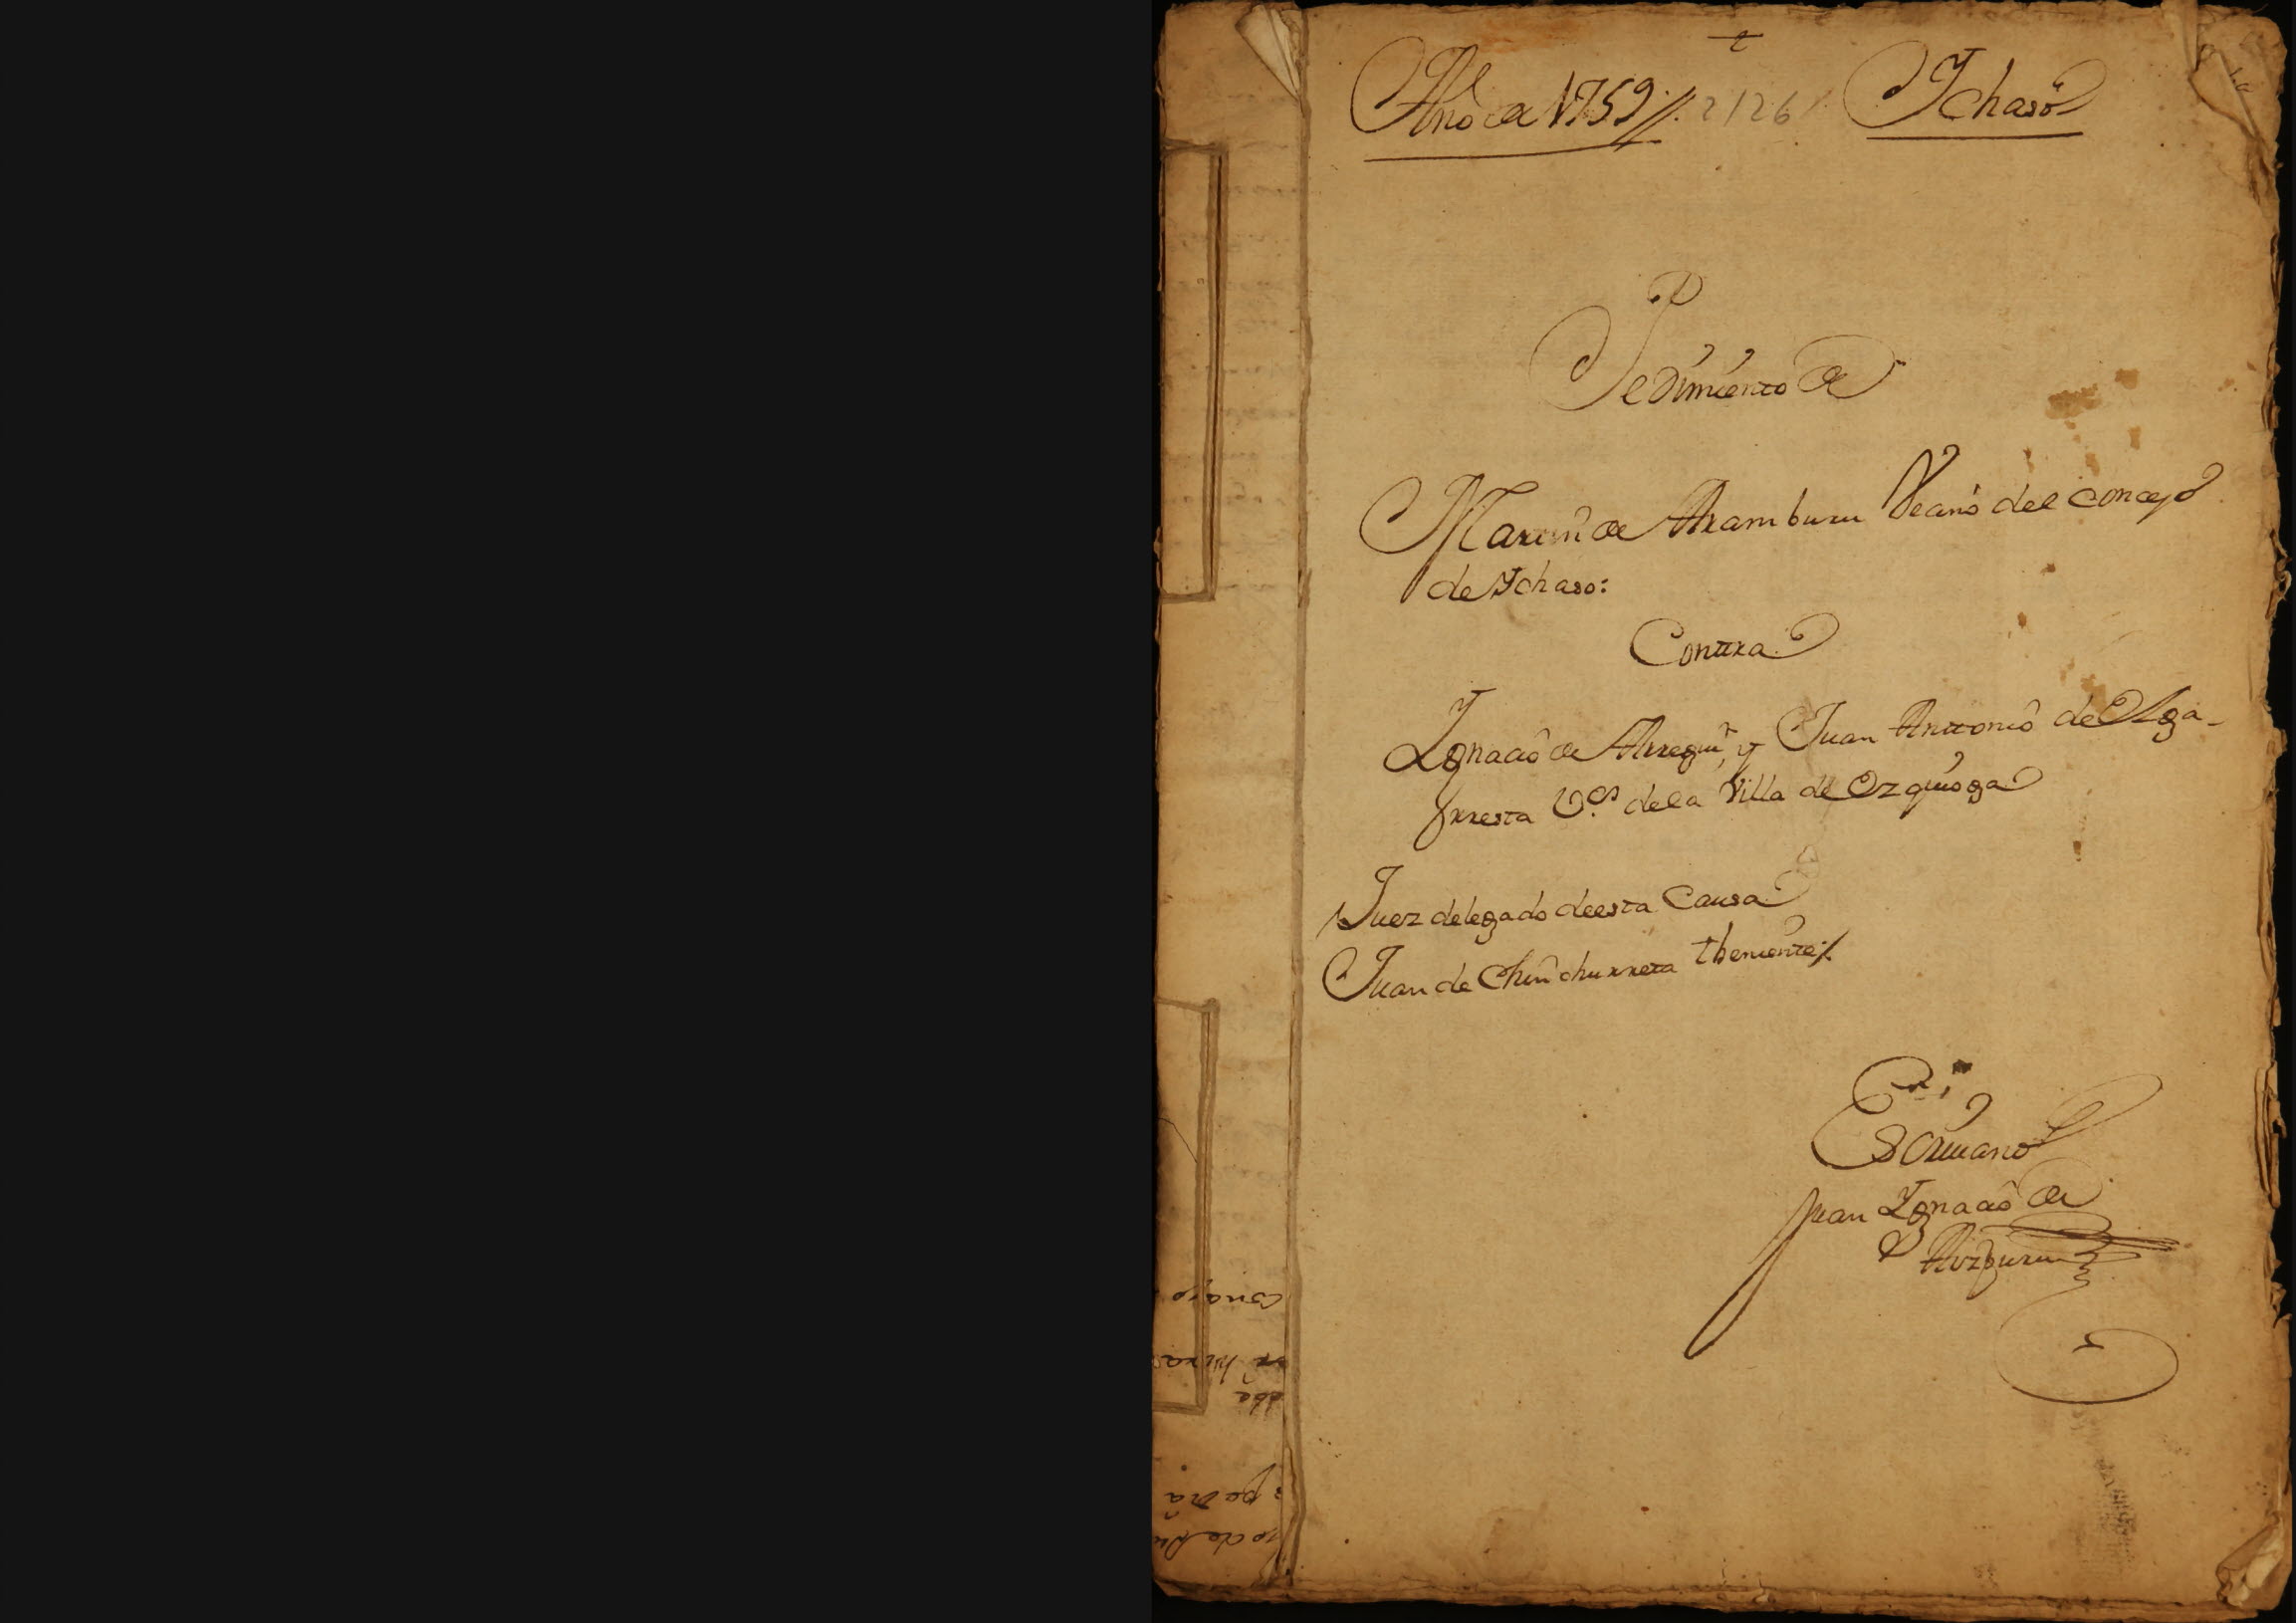 t
Año de 1759 //. 2126 Ychaso
Pedimiento de
Martin de Aramburu Vecino del concejo
de Ychaso:
Contra
Ygnacio de Arregui, y Juan Antonio de Alga-
rresta V.os de la Villa de Ezquioga
Juez delegado de esta Causa
Juan de Chinchurreta theniente /.
En.
Escriuano
Juan Ygnacio de
Aizpuru